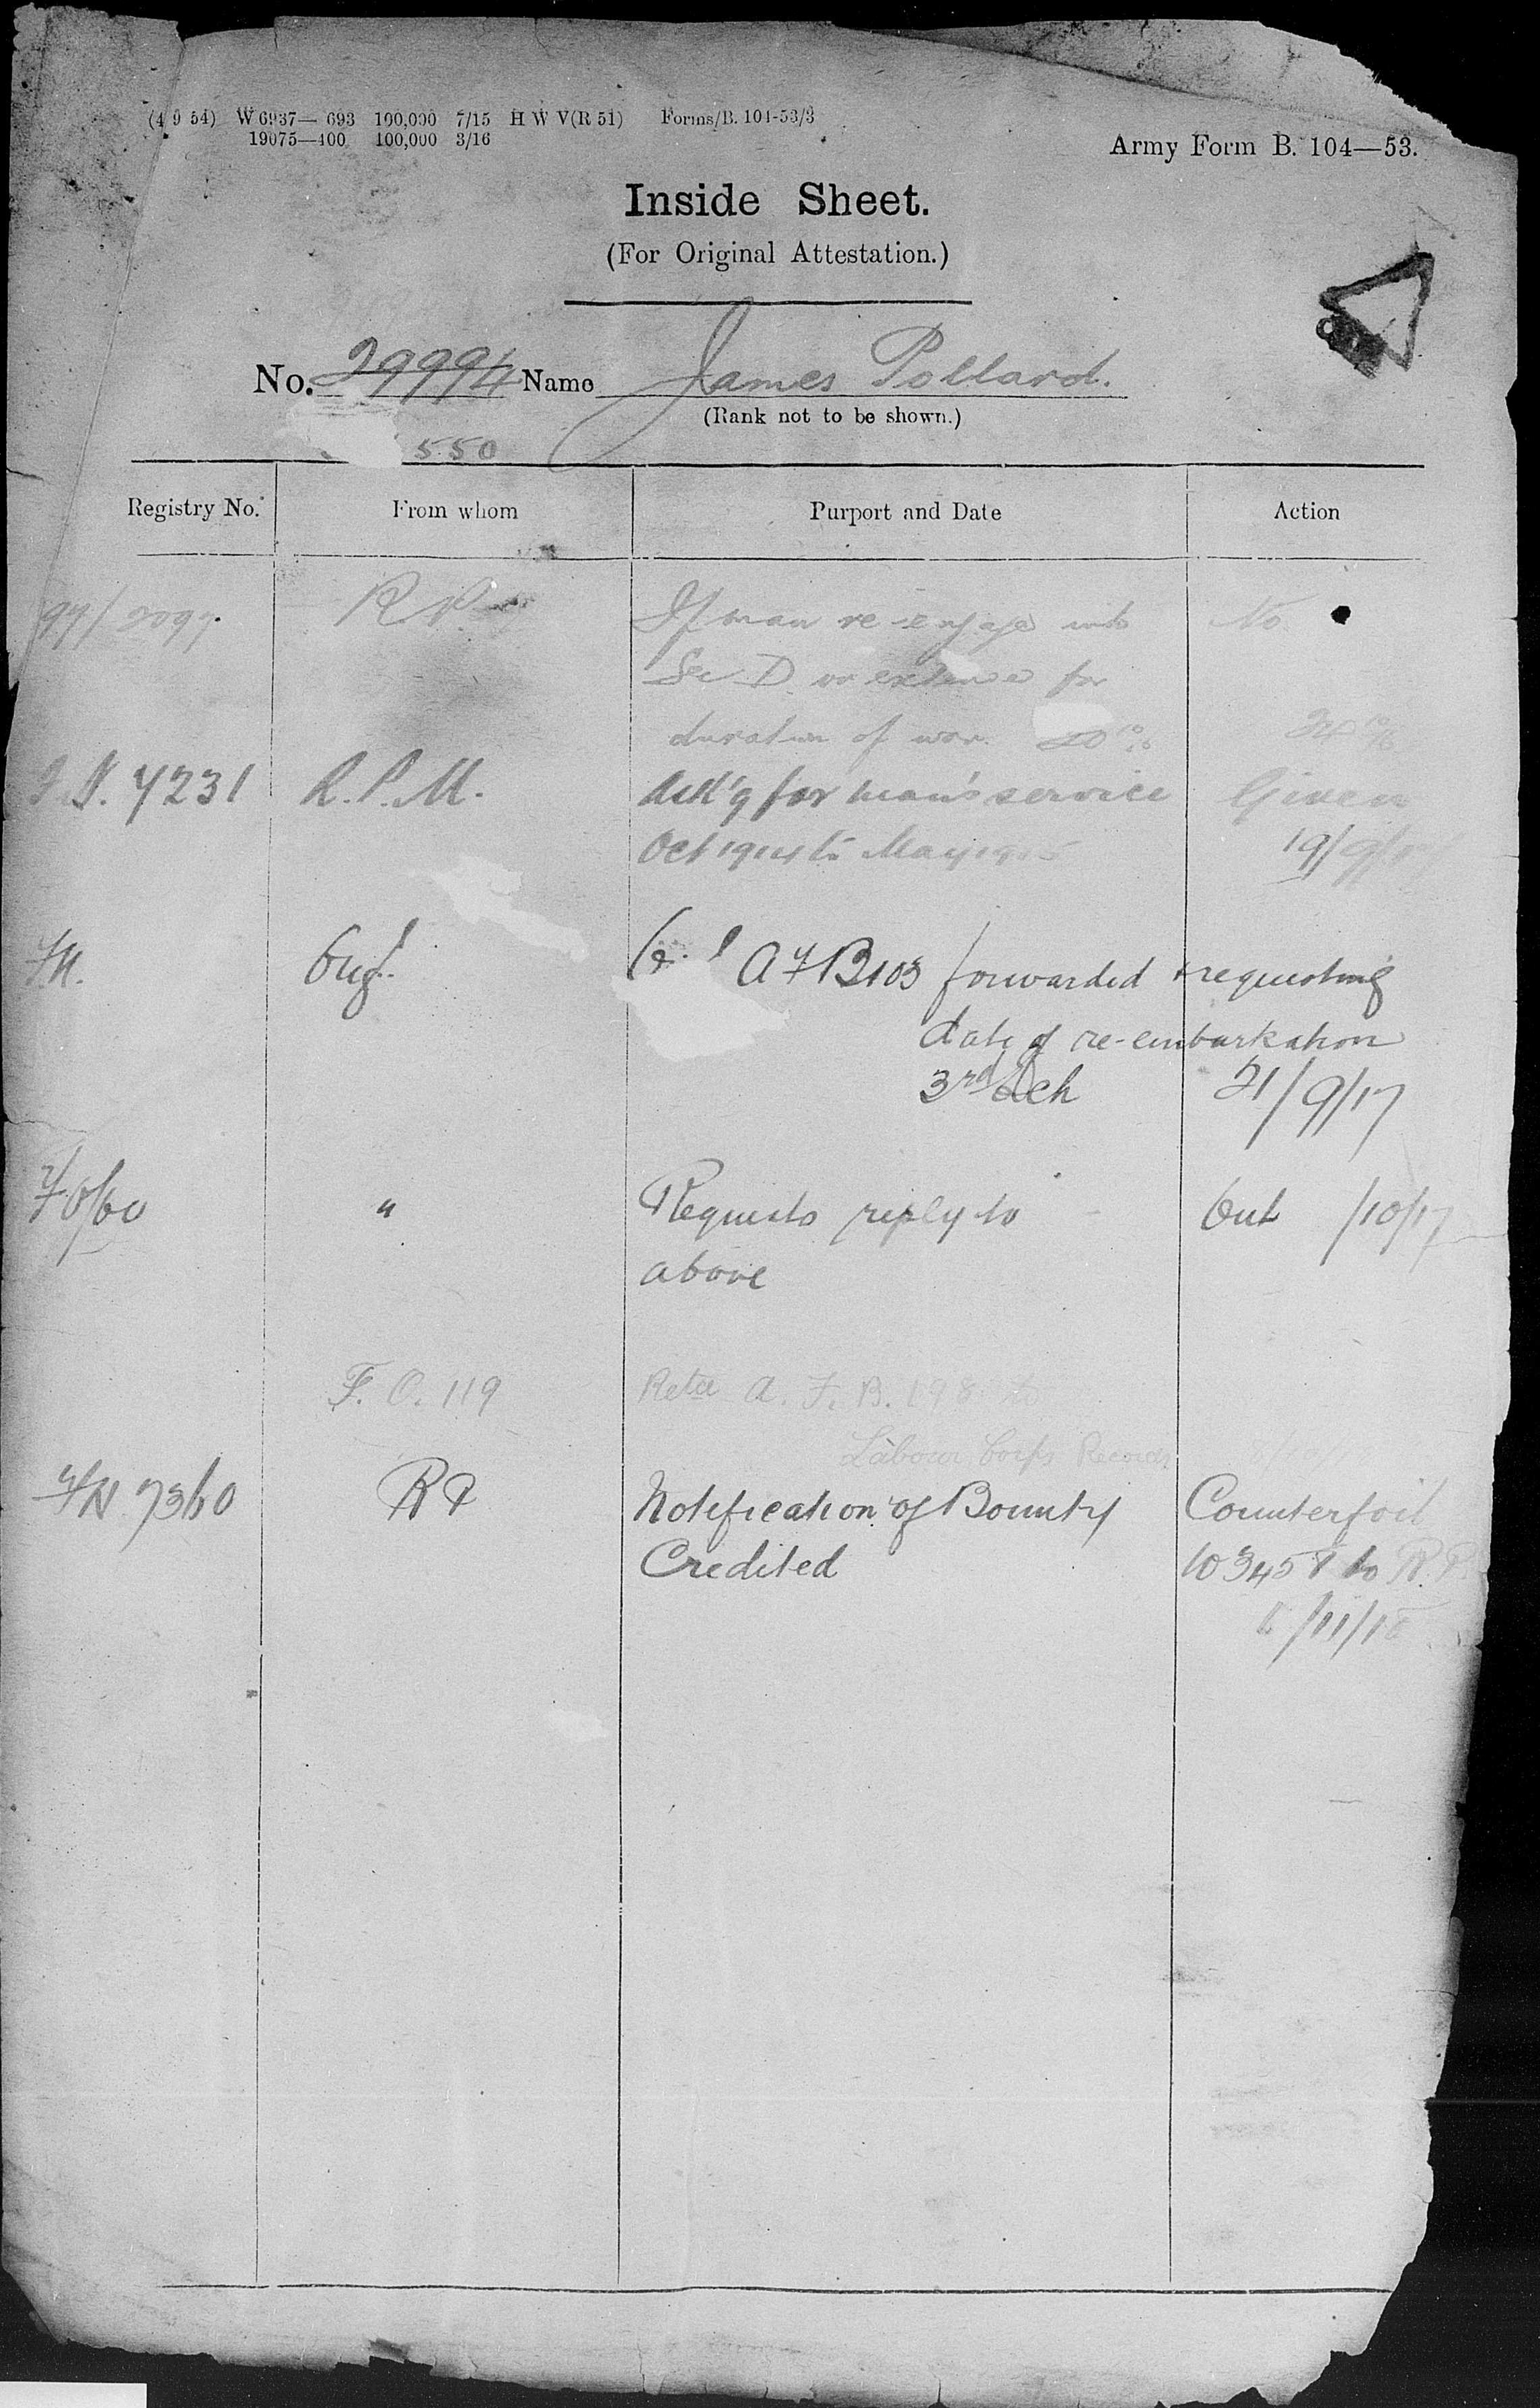 (4 9 54) W 6937— 693 100,000 7/15 H W V(R 51) Forms/B. 104-53/3
19075—400 100,000 3/16
Army Form B. 104—53.
Inside Sheet.
(For Original Attestation.)
No. 29994 Name James Pollard.
(Rank not to be shown.)
550
Registry No. From whom Purport and Date Action
R P If man re-engage into No
D or extend for
duration of war.
4231 R.P.M. for man's service Given
Oct 1914 to May 1915 19/9/17
A F B103 forwarded requesting
date of re-embarkation
3rd Ech 21/9/17
" Requests reply to Out /10/17
above
F. O. 119 A. F. B. 198 to
Labour Corps Records
7360 R P Notification of Bounty Counterfoil
Credited to R.P.
/11/18